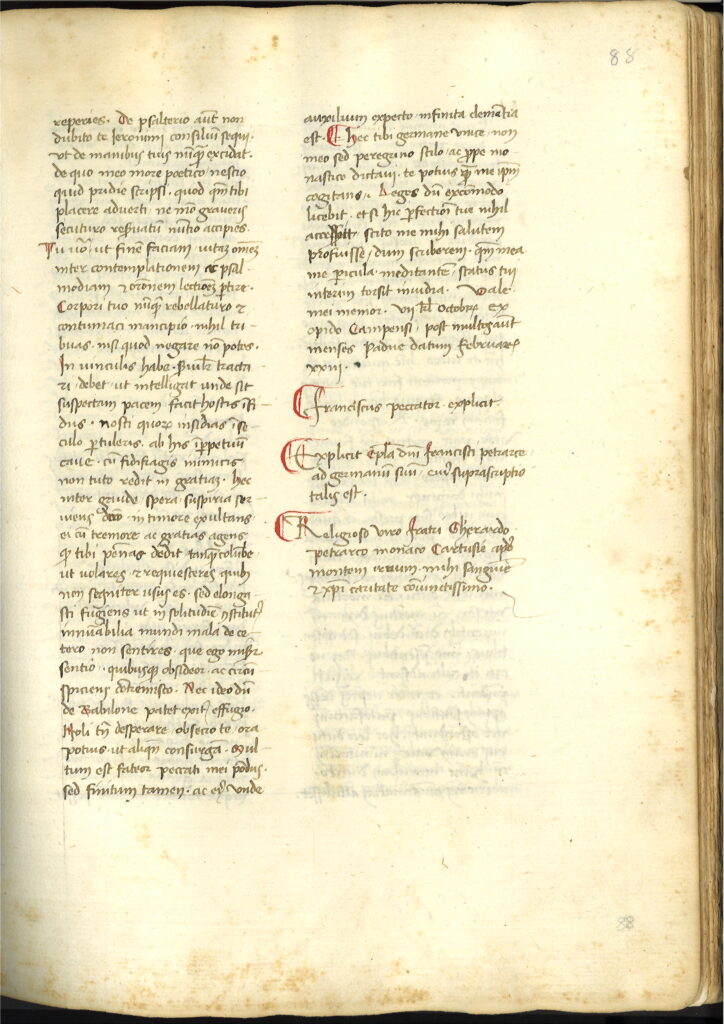 88
reperies. De psalterio aut non
dubito te Ieronimi consiliu sequi.
ut de manibus tuis nuq excidat.
de quo meo more poetico nescio
quid pridie scripsi. quod qm tibi
placere adverti ne mo graveris
secuturo reservatu nutio accipies.
Tu vo. ut fine faciam vitaz omez
inter contemplationem & psal
modiam & oronem lectioez ptire.
Corpori tuo nuq rebellaturo &
contumaci mancipio nihil tri
buas. nisi quod negare no potes.
In vinculis habe. Svilr tracta
ri debet ut intelligat unde sit
suspectam pacem facit hostis
dus. nosti quor insidias i se
culo ptuleris. ab his ippetuu
cave. cu fidifragis inimicis
non tuto redit in gratiaz. hec
inter gaude spera suspiria ser
viens dno in timore exultans
ei cu tremore ac gratias agens
q tibi penas dedit tanq colube
ut volares & requiesceres quib
non segniter usus es. sed elonga
sti fugiens ut in solitudie ostitut
innuabilia mundi mala de ce
tero non sentires. que ego misr
sentio. quibusq obsideor. ac circu
spiciens contremisco. Nec ideo du
de Babilone patet exit effugio.
Noli tn desperare obsecro te. ora
potius ut aliqn consurga. Mul
tum est fateor peccati mei podus.
sed finitum tamen. ac ex unde
auxilium expecto infinita clementia
est. Hec tibi germane unice. non
meo sed peregrino stilo. ac ppe mo
nastico dictavi. te potius q me ipm
cogitans. Leges du excomodo
licebit. et si hic pfectioni tue nihil
accessit scito me mihi salutem
profuisse. dum scriberem. qm mea
me pericula meditante. status tui
interim torsit invidia. Vale
mei memor. vii kl Octobr ex
opido Campensi. post multz aut
menses Padue datum Februar
xxiii.
Franciscus peccator explicit
Explicit Epla dni Francisci petrarce
ad germanu suu. cui suprascriptio
talis est.
Religioso viro fratri Gherardo
petrarco monaco Cartusie apd
montem rivum. mihi sanguie
& xpi caritate coniunctissimo.
88